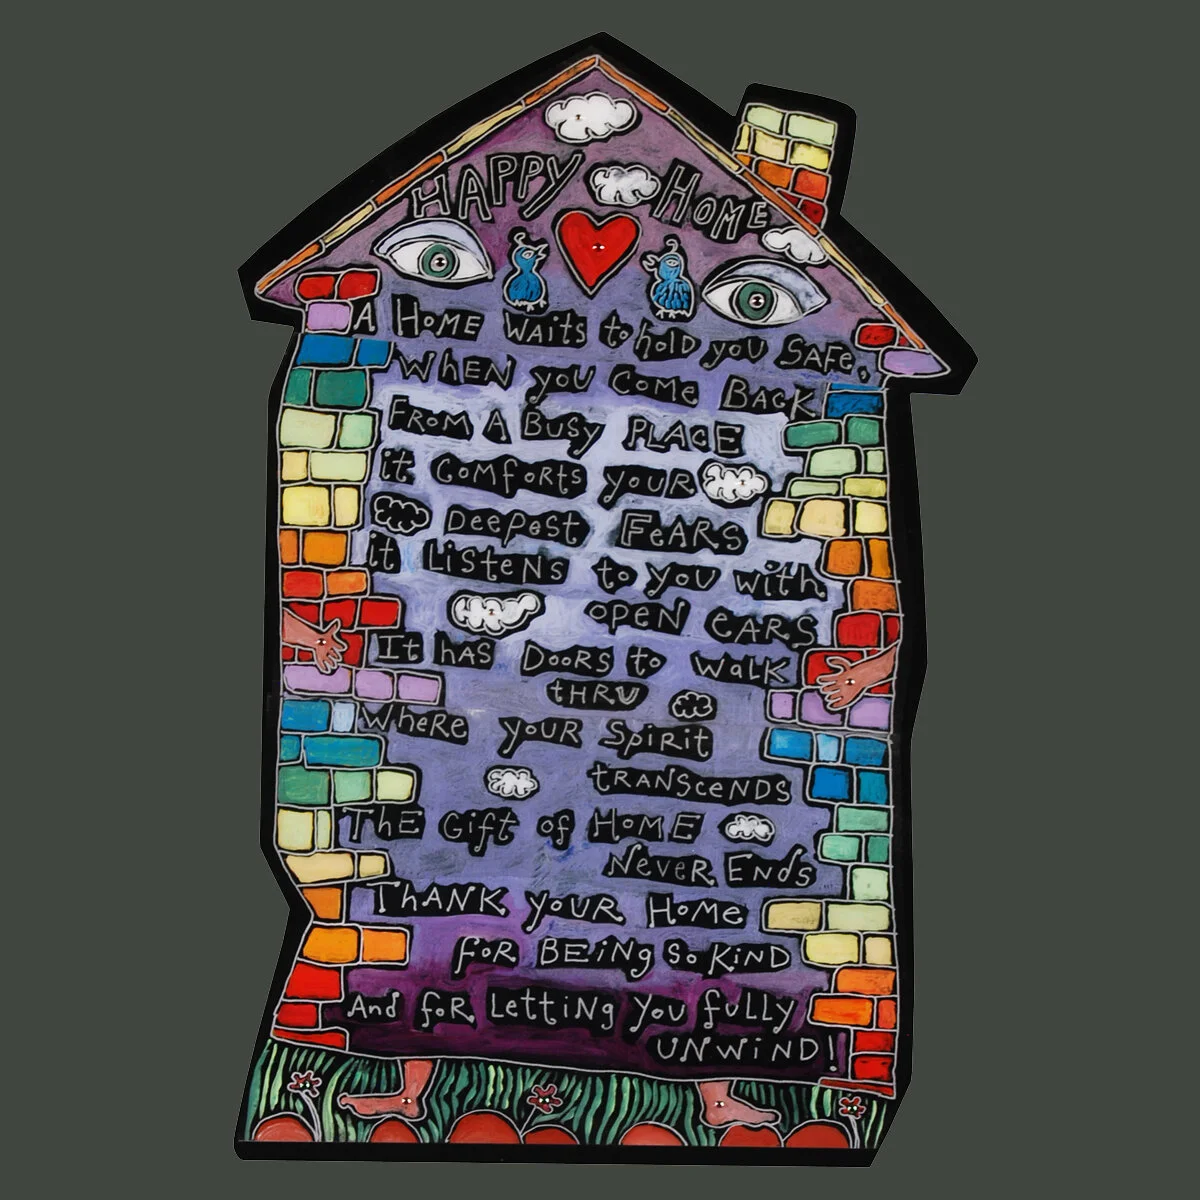 HAPPY HOME
A HOME WAitS to hold you SAFE,
WhEN you Come BACK
FROM A Busy PLACE
it COMfoRtS youR
DeepeSt FeARS
it LiSteNS to you with
OPEN EARS
It hAS DooRS to WALK
tHRU
WheRe youR SpiRit
tRANSceNDS
ThE Gift of HOME
NeveR ENdS
ThANK youR Home
foR BEiNg So KiND
And foR LettiNg you fully
UNWiND!